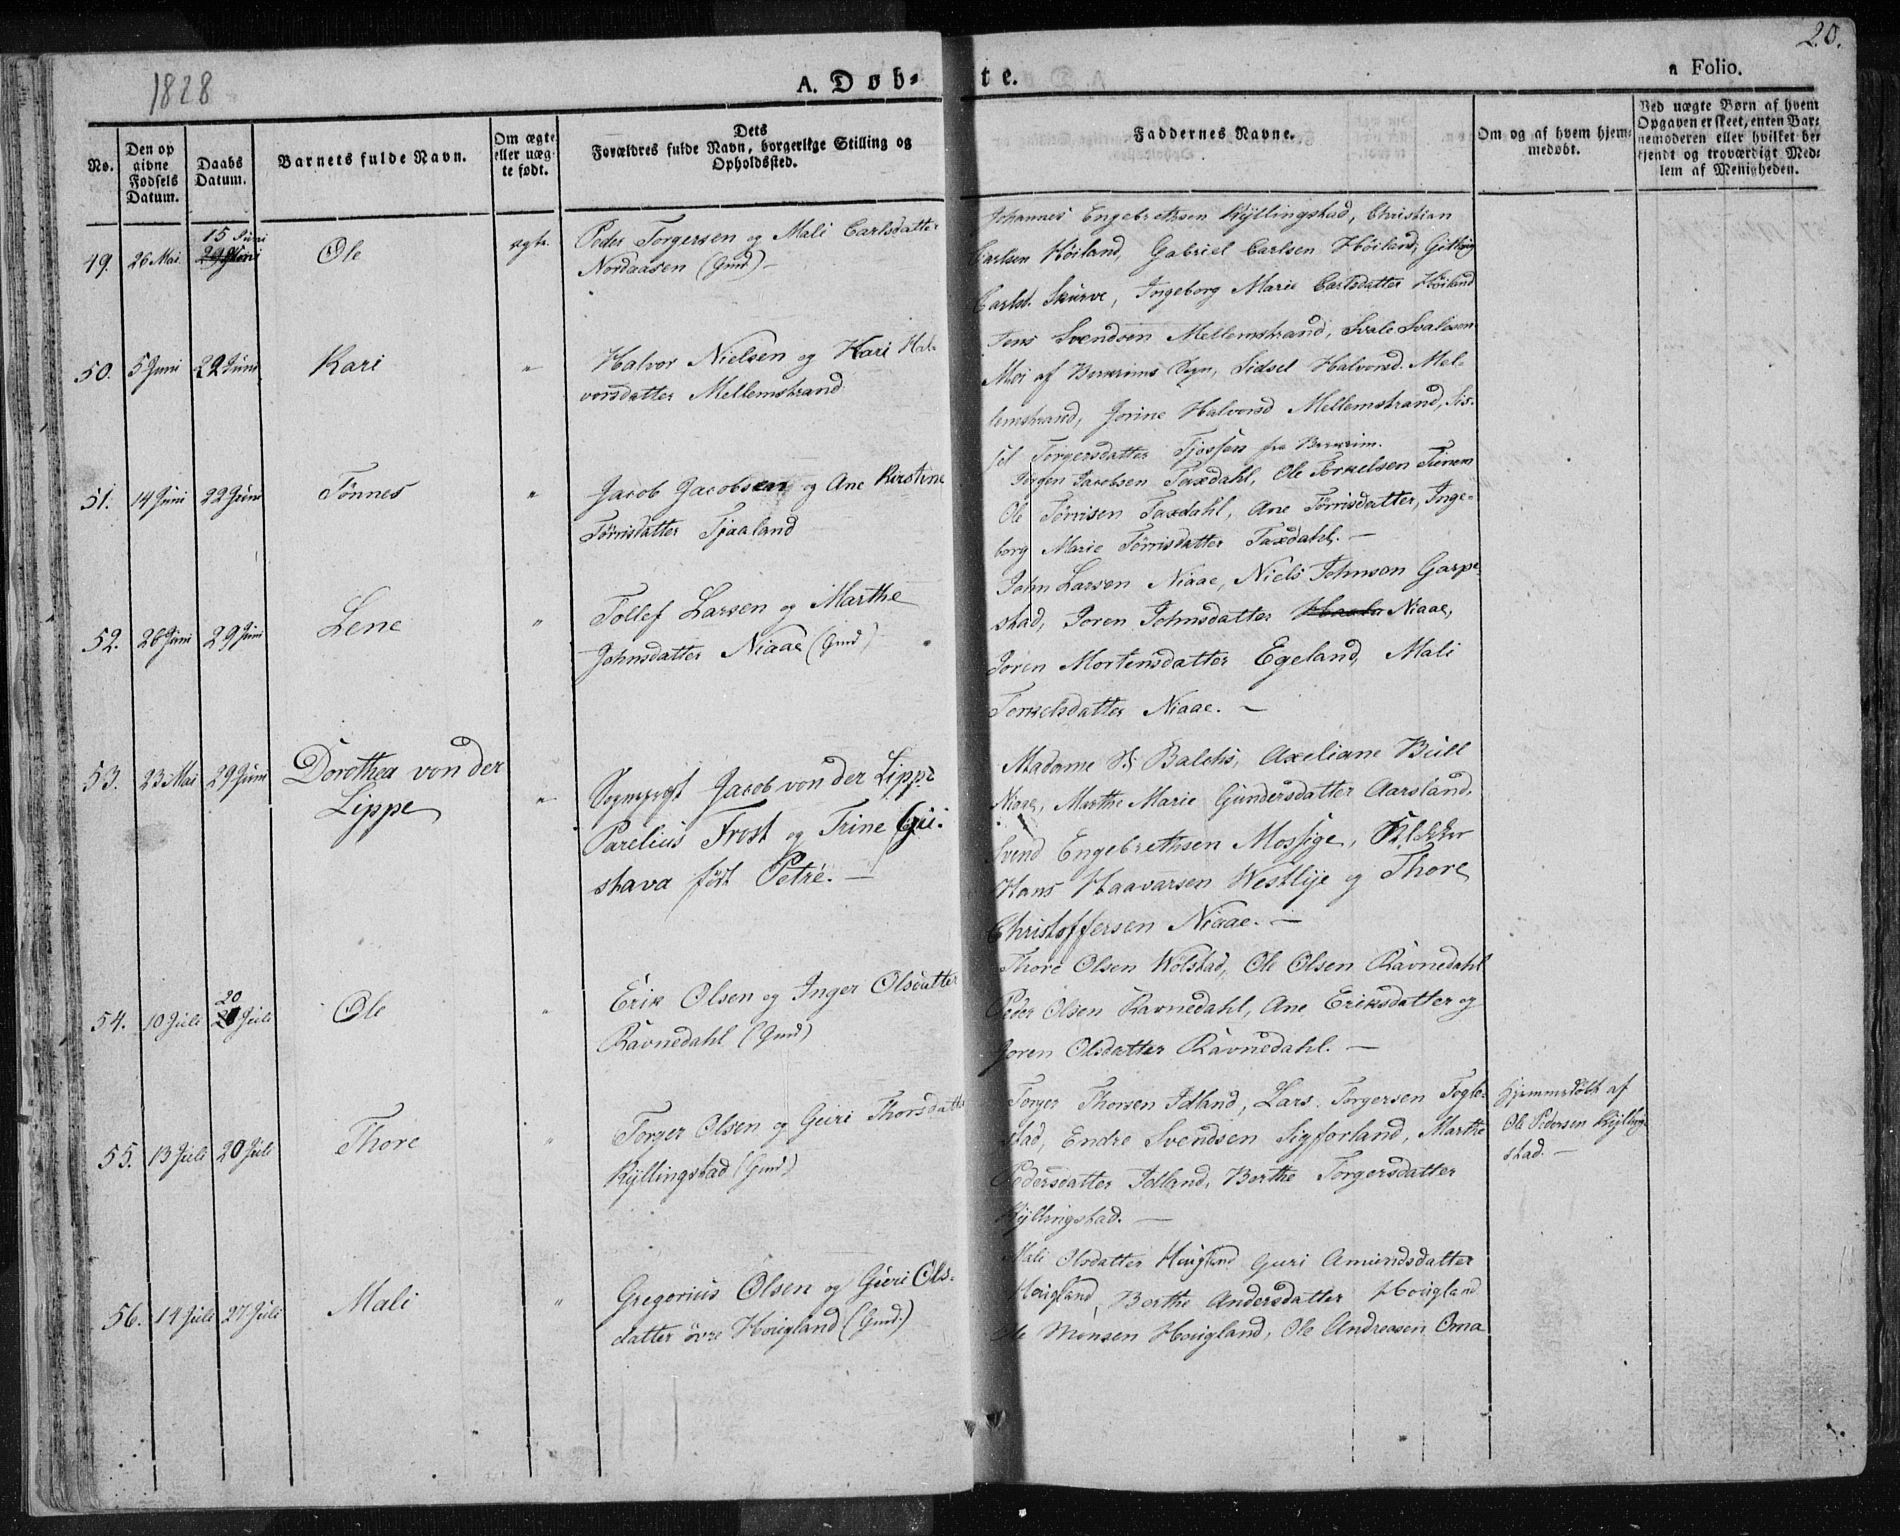 1828
20.
A. Døb-
te.
a Folio.
No.
Den op
givne
Fødsels
Datum.
Daabs
Datum.
Barnets fulde Navn.
Om ægte
eller uæg-
te født.
Dets
Forældres fulde Navn, borgerlige Stilling og
Opholdssted.
Faddernes Navne.
Om og af hvem hjem-
medøbt.
Ved uægte Børn af hvem
Opgaven er skeet, enten Bar-
nemoderen eller hvilket be-
kjendt og troværdigt Med-
lem af Menigheden.
49. 26 Mai 15 Juni 29 Juni Ole ægte
Peder Torgersen og Mali Carlsdatter
Nordaasen (Gmd) -
Johannes Engebrethsen Kÿllingstad, Christian
Carlsen Höiland, Gabriel Carlsen Höiland,
Carlsd. Skurve, Ingeborg Marie Carlsdatter Höiland
50. 5 Juni 22 Juni Kari "
Halvor Nielsen og Kari Hal-
vorsdatter Mellemstrand
Jens Svendsen Mellemstrand, Svale Svalesen
Moi af Bierkrims Sogn, Sidsel Halvorsd. Mel-
lemstrand, Jorine Halvorsd Mellemstrand, Sis-
sel Torgersdatter Tjossem fra Berkrim.
51. 14 Juni 22 Juni Tönnes "
Jacob Jacobsen og Ane Kirstine
Törrisdatter Tjaaland
Jörgen Jacobsen Taxdahl, Ole Torkelsen
Ole Törrisen Taxdahl, Ane Törrisdatter, Inge-
borg Marie Törrisdatter Taxdahl. -
52. 26 Juni 29 Juni Lene "
Tollef Larsen og Marthe
Johnsdatter Niaae (Gmd)
John Larsen Niaae, Niels Johnson Garpe-
stad, Joren Johnsdatter Niaae,
Joren Mortensdatter Egeland, Mali
Torkelsdatter Niaae. -
53. 23 Mai 29 Juni Dorothea von der
Lippe "
Sogneprest Jacob von der Lippe
Parelius Frost og Trine Gu-
stava født Petré. -
Madame S Balchs, Axeliane Bull
Niaae, Marthe Marie Gundersdatter Aarsland,
Svend Engebrethsen Mossige, Klokker
Hans Haavarsen Westlÿe og Thore
Christoffersen Niaae. -
54. 10 Juli 20 Juli Ole "
Erik Olsen og Inger Olsdatter
Ravnedahl (Gmd)
Thore Olsen Wolstad, Ole Olsen Ravnedahl
Peder Olsen Ravnedahl, Ane Eriksdatter og
Joren Olsdatter Ravnedahl. -
55. 13 Juli 20 Juli Thore "
Torger Olsen og Guri Thorsdatter
Kÿllingstad (Gmd)
Torger Thorsen Idland, Lars Torgersen Fogle-
stad, Endre Svendsen Sigforland, Marthe
Pedersdatter Idland, Berthe Torgersdatter
Kÿllingstad. -
hjemmedöbt af
Ole Pedersen Kÿlling-
stad. -
56. 14 Juli 27 Juli Mali "
Gregorius Olsen og Guri Ols-
datter övre Hougland (Gmd.)
Mali Olsdatter Hougland Guri Amundsdatter
Hougland, Berthe Andersdatter Hougland
Ole Monsen Hougland, Ole Andreasen Oma